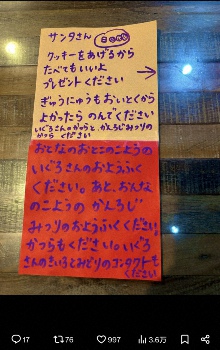 サンタさん
クッキーをあげるから
たべてもいいよ
プレゼントください
ぎゅうにゅうもおいとくから
よかったら のんでください
いぐろさんのかつらと かんろじみつりの
かつら ください
おとなのおとこのこようの
いぐろさんのおようふく
ください。あと、おんな
のこようの かんろじ
みつりのおようふくください。
かつらもください。いぐろ
さんのきいろとみどりのコンタクトも
ください
17
76
997
3.6万